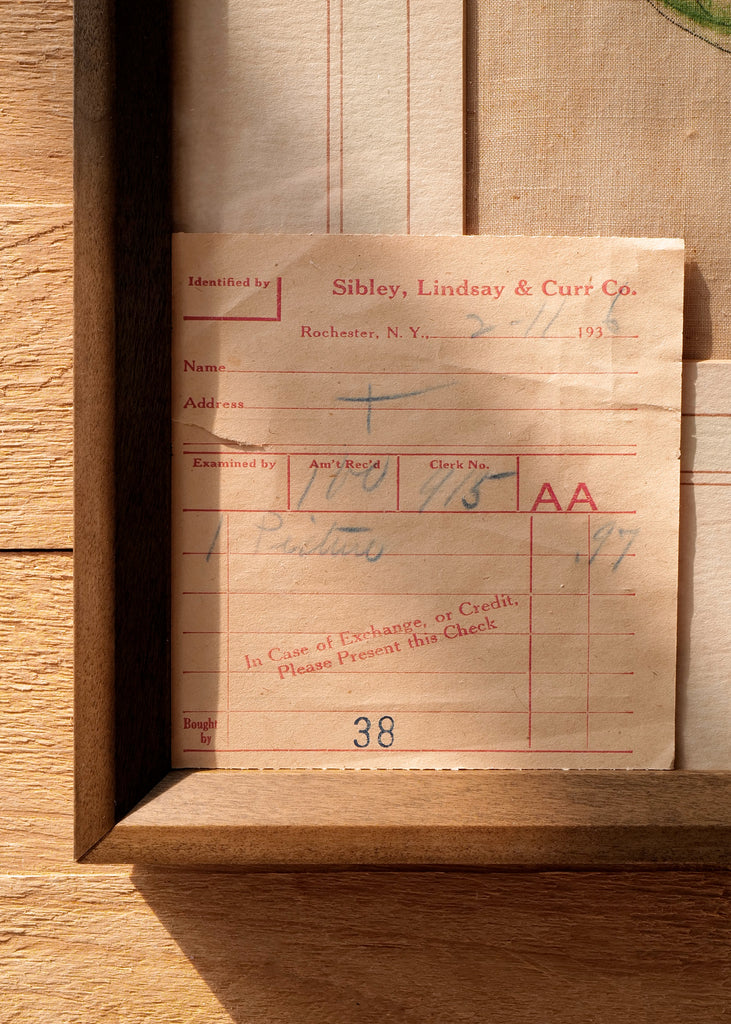 Identified by
Sibley, Lindsay & Curr Co.
Rochester, N. Y., 2-11 1936
Name
Address
Examined by Am't Rec'd Clerk No.
100 915 AA
1 Picture .97
In Case of Exchange, or Credit,
Please Present this Check
Bought by 38